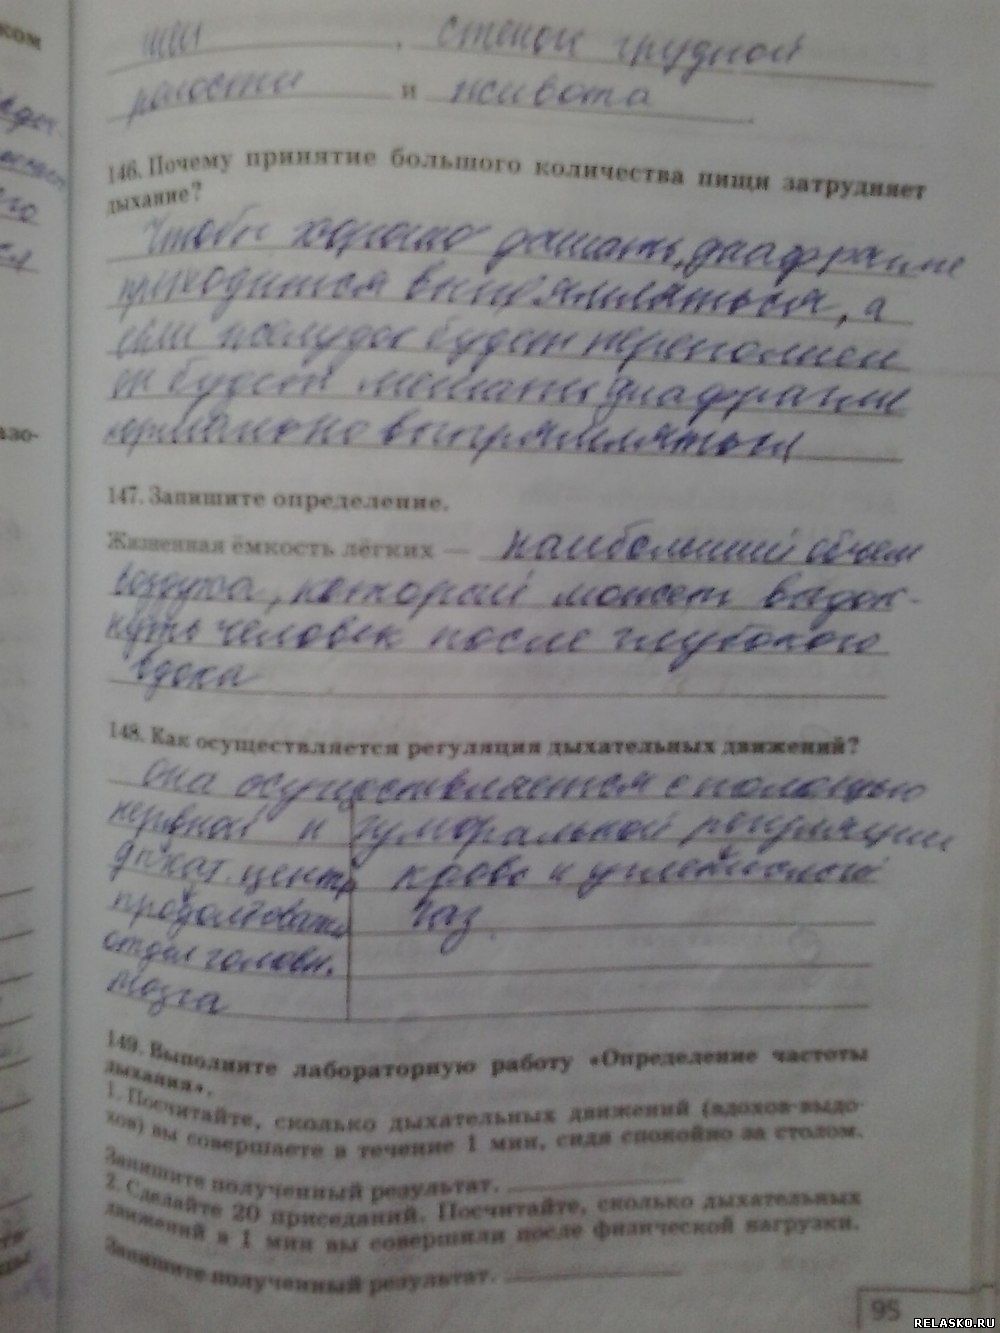 шеи, стенок грудной
полости и живота.
146. Почему принятие большого количества пищи затрудняет
дыхание?
Чтобы хорошо дышать, диафрагме
приходится выпрямляться, а
если желудок будет переполнен
он будет мешать диафрагме
нормально выпрямляться
147. Запишите определение.
Жизненная ёмкость лёгких — наибольший объем
воздуха, который может выдох-
нуть человек после глубокого
вдоха
148. Как осуществляется регуляция дыхательных движений?
она осуществляется с помощью
нервной и гуморальной регуляции
дыхат. центр кровь и углекислый
продолговаты газ.
отдел головн.
мозга
149. Выполните лабораторную работу «Определение частоты
дыхания».
1. Посчитайте, сколько дыхательных движений (вдохов-выдо-
хов) вы совершаете в течение 1 мин, сидя спокойно за столом.
Запишите полученный результат.
2. Сделайте 20 приседаний. Посчитайте, сколько дыхательных
движений в 1 мин вы совершили после физической нагрузки.
Запишите полученный результат.
95
RELASKO.RU